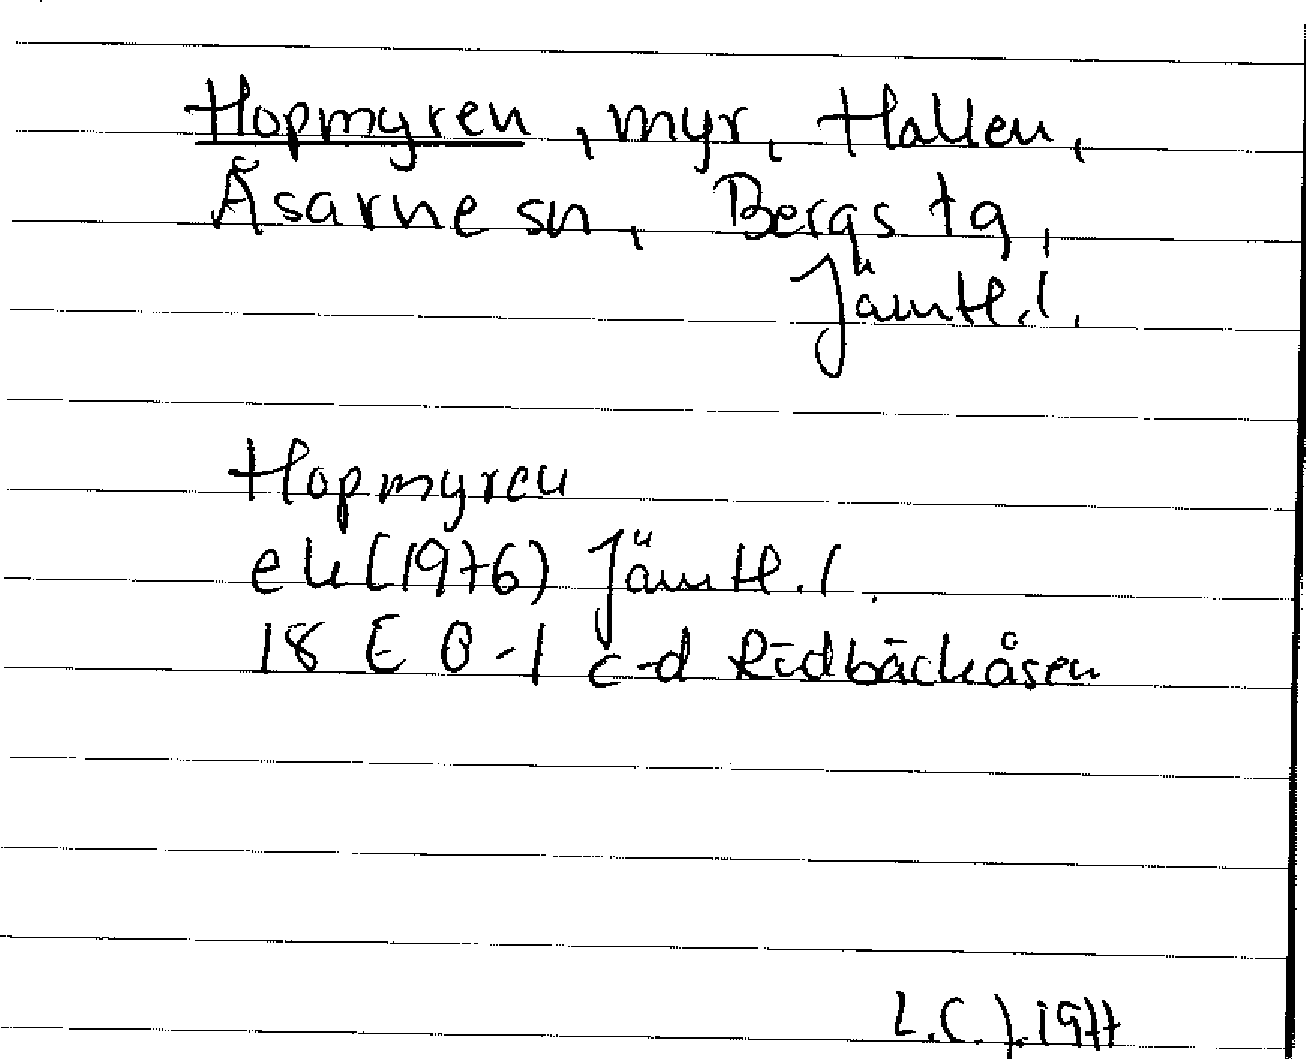 Hopmyren, myr, Hallen,
Åsarne sn, Bergs tg,
Jämtl.l.
Hopmyren
ek (1976) Jämtl.l.
18 E 0-1 c-d Rödbäckåsen
L.C.J. 1977